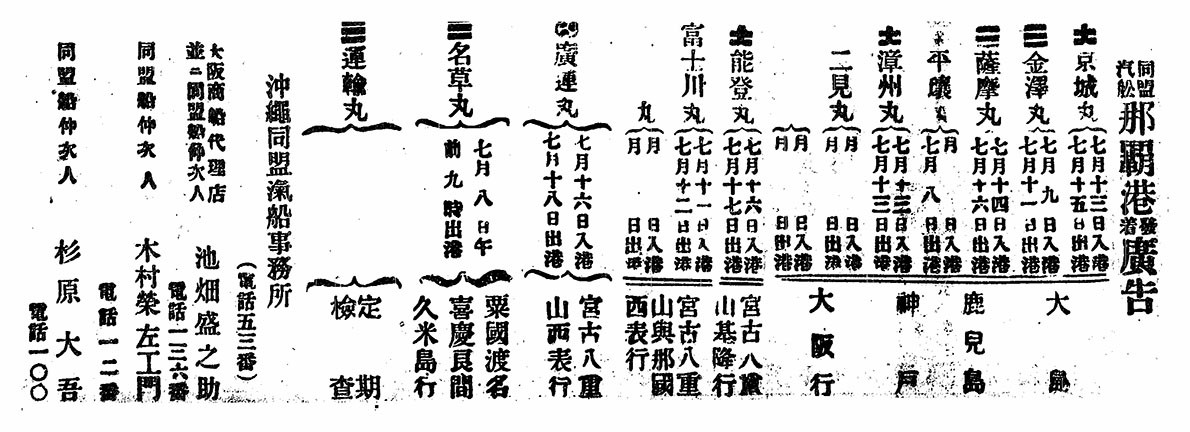 同盟汽舩那覇港發着廣告
京城丸 七月十三日入港 七月十五日出港
金澤丸 七月九日入港 七月十一日出港
薩摩丸 七月十四日入港 七月十六日出港
平壤丸 月 日入港 七月八日出港
漳州丸 七月十三日入港 七月十三日出港
二見丸 月 日入港 月 日出港
月 日入港 月 日出港
大島
鹿兒島
神戸
大阪行
能登丸 七月十六日入港 七月十七日出港 宮古八重山基隆行
富士川丸 七月十一日入港 七月十二日出港
丸 月 日入港 月 日出港
宮古八重山與那國西表行
廣運丸 七月十六日入港 七月十八日出港 宮古八重山西表行
名草丸 七月八日午前九時出港 粟國渡名喜慶良間久米島行
運輸丸 定期檢査
沖繩同盟滊船事務所
（電話五三番）
大阪商船代理店並ニ同盟船仲次人 池畑盛之助
電話一三六番
同盟船仲次人 木村榮左工門
電話一二番
同盟船仲次人 杉原大吾
電話一〇〇